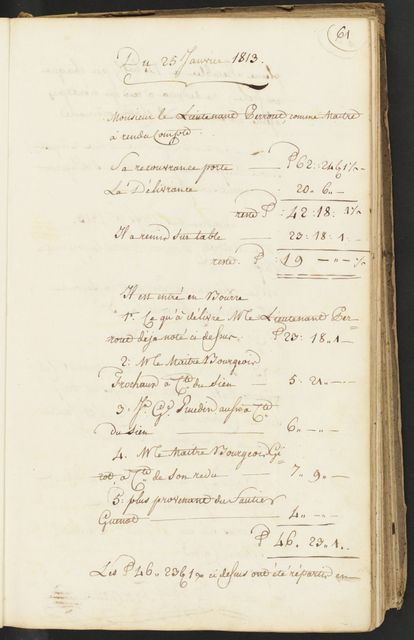 61
Du 25 Janvier 1813.
Monsieur le Lieutenant Perrout comme Maitre
a rendu Compte.
Sa recouvrance porte — ₽ 62: 24 ß 1/2
La Délivrance — 20 „ 6 „ —
rend ₽ : 42: 18: 1/2
Il a remis sur table — 23: 18: 1 „
reste. ₽ : 19 — „ — 1/2
Il est entré en Bourse
1°. Ce qu'à délivré Mr le Lieutenant Per-
rout déja noté ci dessus. ₽ 23: 18 „ 1 —
2: Mr le Maitre Bourgeois
Prochaux à Cte du Sien — 5: 21 „ — —
3. Jn. Gd. aussi à Cte
du Sien — 6 „ — —
4. Mr le Maitre Bourgeois Gi-
rot, à Cte de son redu — 7 „ 9 „ —
5: plus provenant du Sautier
Guenot — 4 „ — —
₽ 46 „ 23 „ 1 „
Les ₽ 46 „ 23 ß 1 ci dessus ont été répartis en